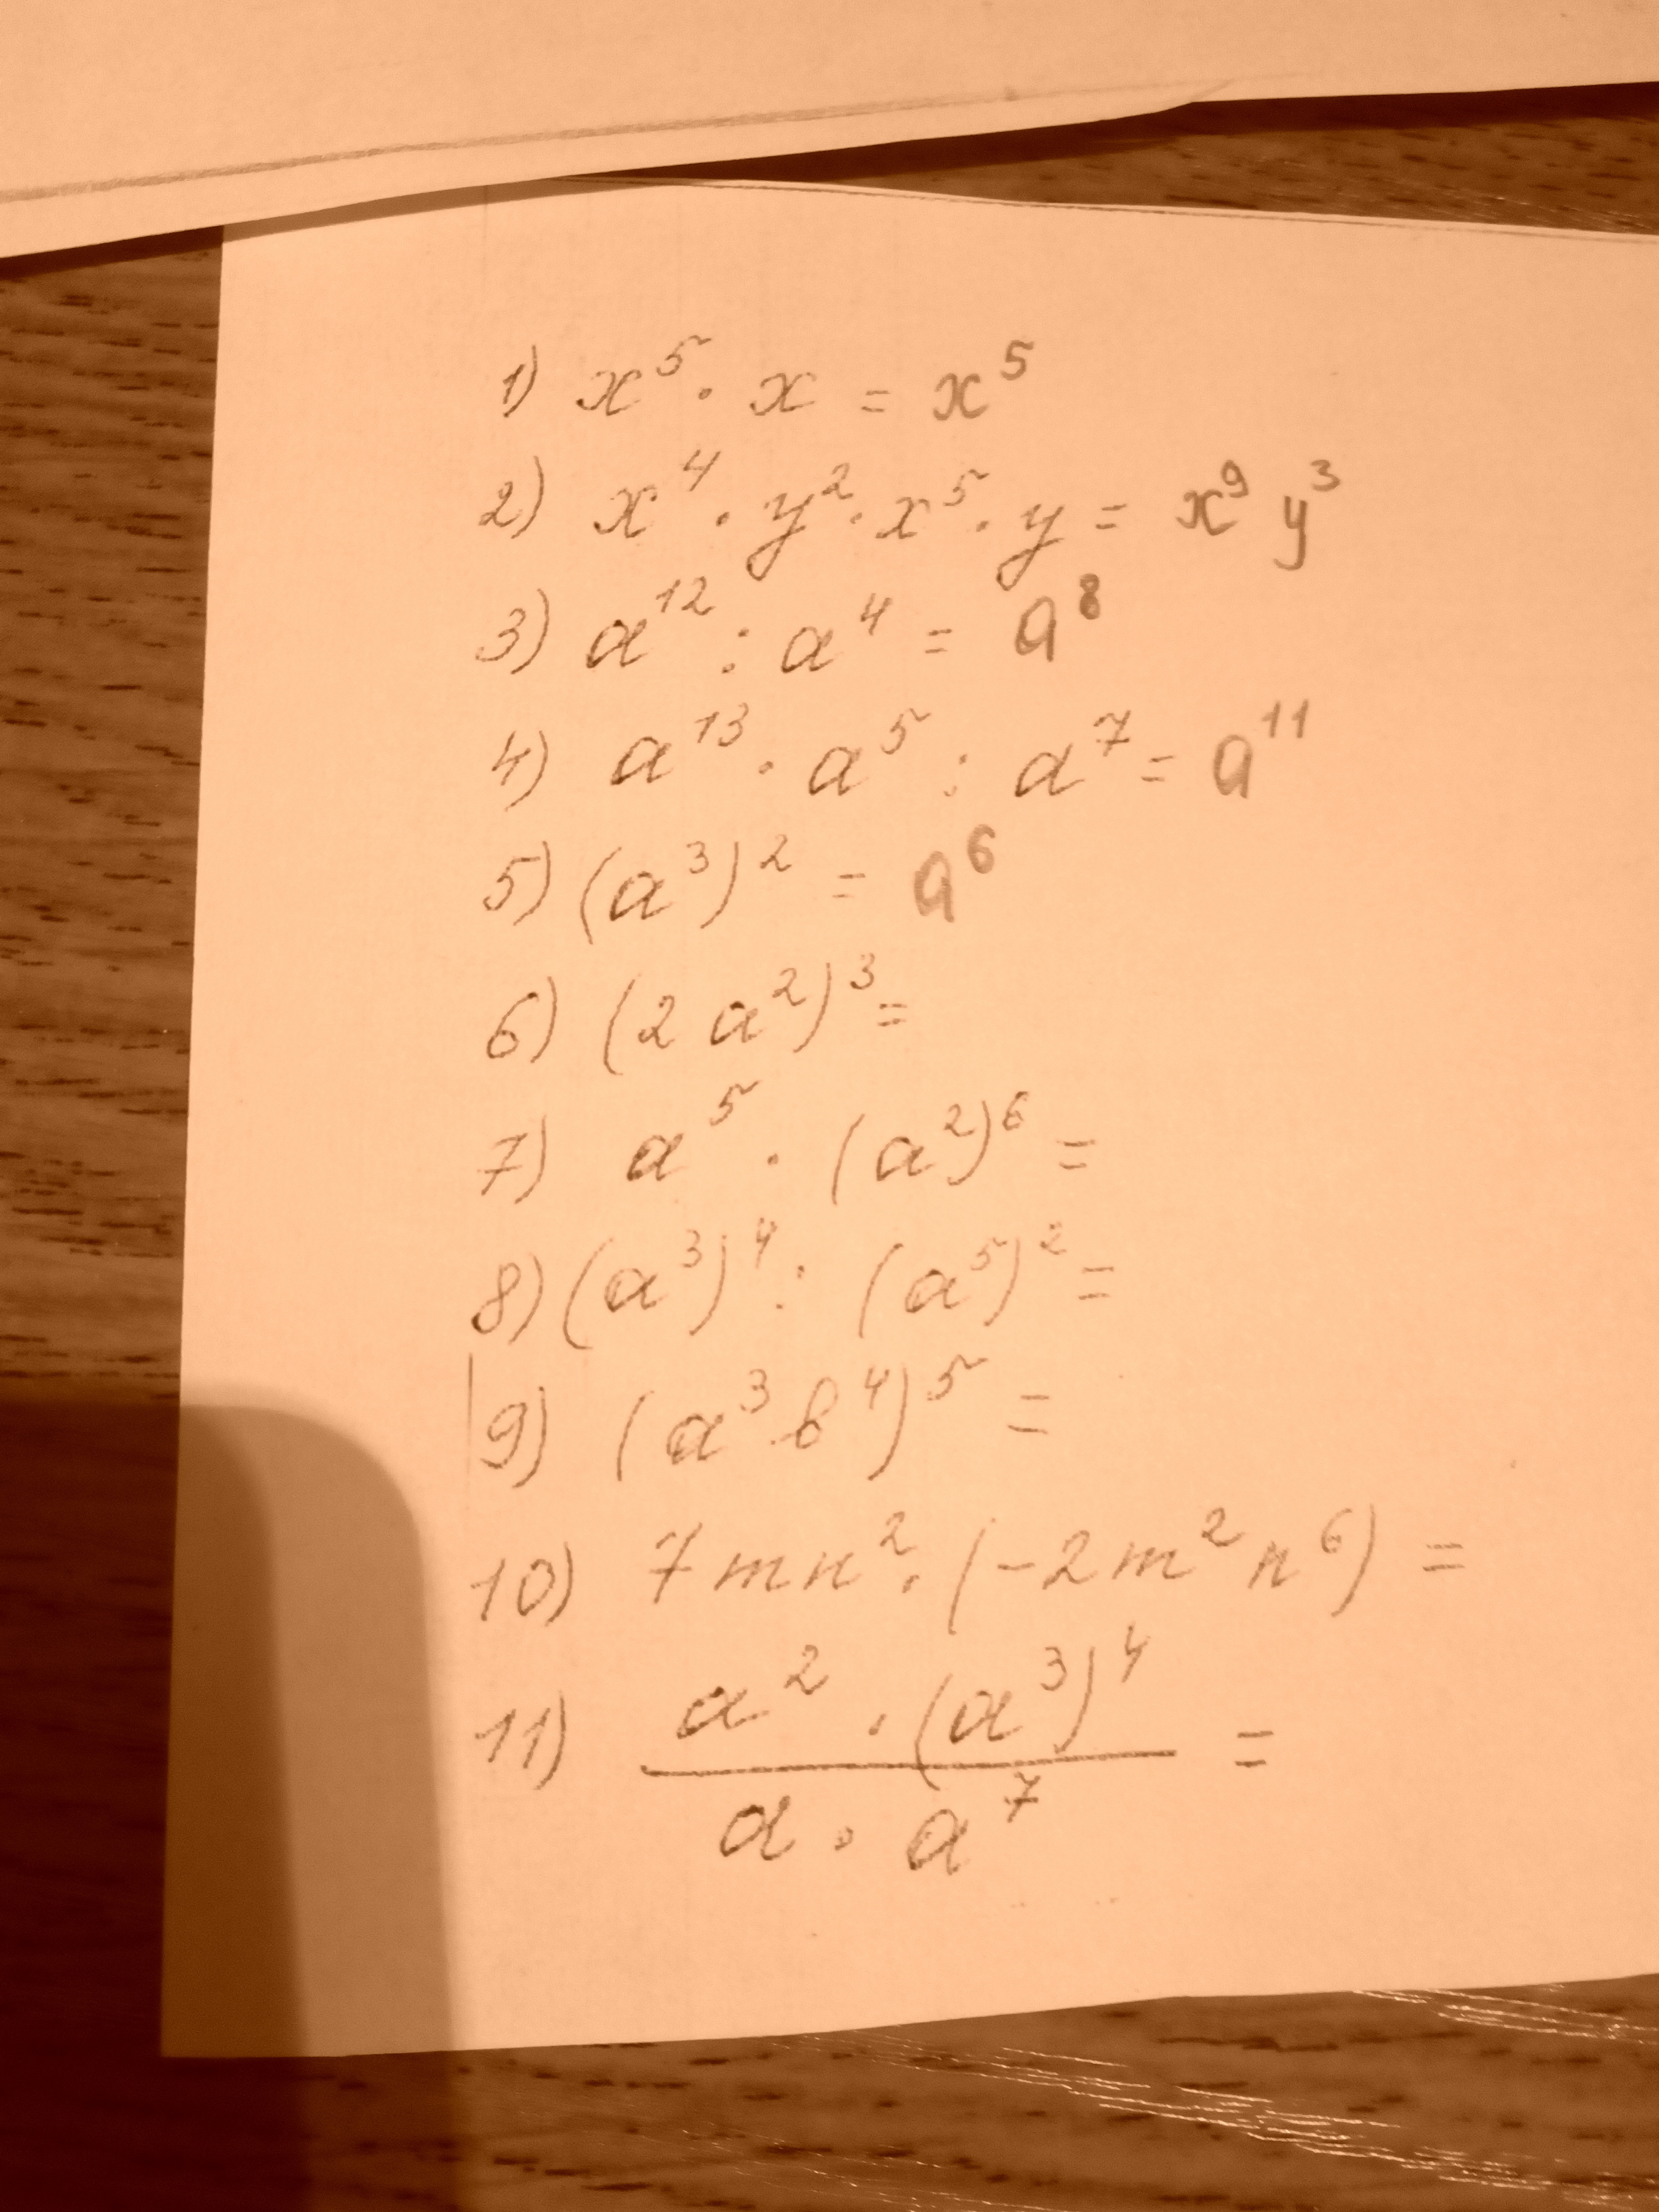 1) x⁵ · x = x⁵
2) x⁴ · y² · x⁵ · y = x⁹ y³
3) a¹² : a⁴ = a⁸
4) a¹³ · a⁵ : a⁷ = a¹¹
5) (a³)² = a⁶
6) (2a²)³ =
7) a⁵ · (a²)⁶ =
8) (a³)⁴ : (a⁵)² =
9) (a³·b⁴)⁵ =
10) 7mn² · (-2m²n⁶) =
11) a² · (a³)⁴ =
a · a⁷